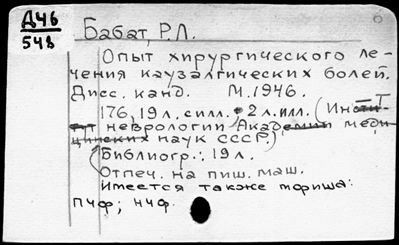 Д46
548
Бабат, Р.Л.
Опыт хирургического ле-
чения каузалгических болей.
Дисс. канд. М. 1946.
176, 19 л. с илл. 2 л. илл. (Инсти-
тут неврологии Академии меди-
цинских наук СССР.)
(Библиогр.: 19 л.
Отпеч. на пиш. маш.
Имеется также мфиша:
ПЧФ; НЧФ.